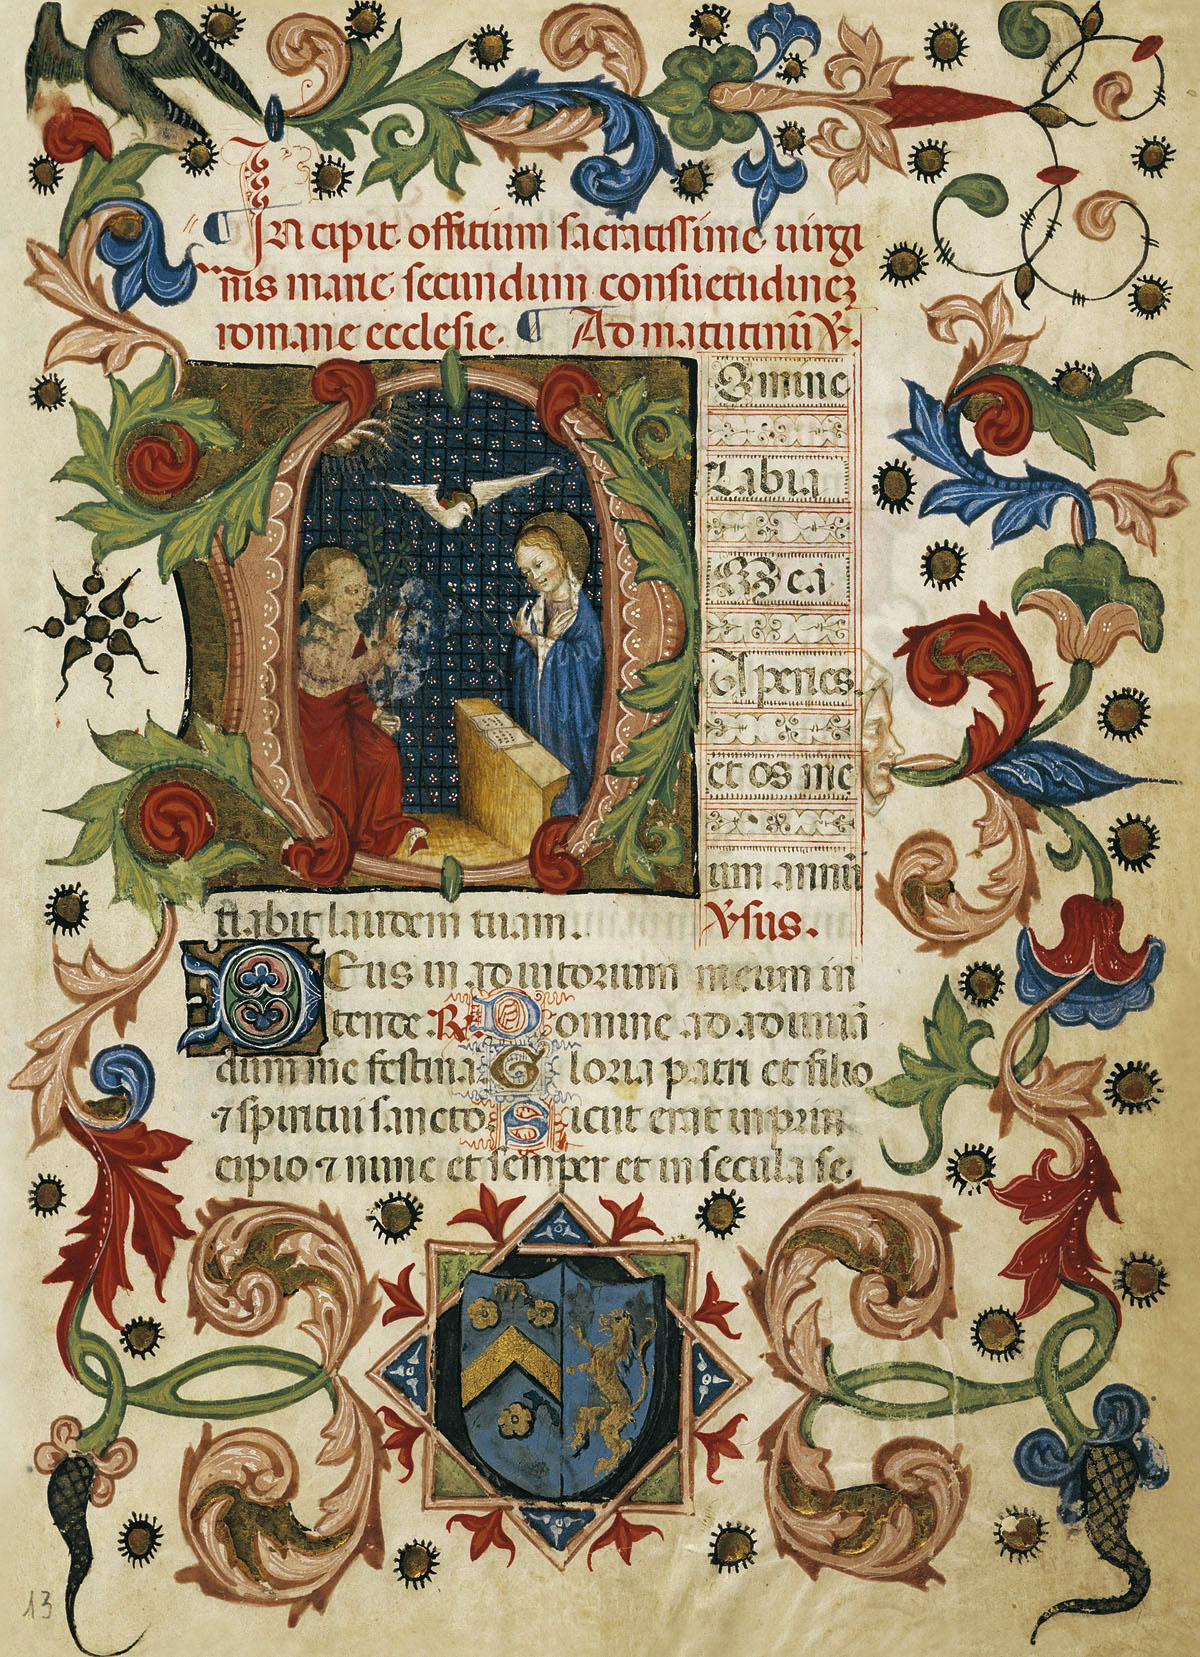 Incipit offitium sacratissime uirgi
nis marie secundum consuetudinez
romane ecclesie. Ad matutinū V̵.
Omine
Labia
Mea
Aperies
et os me
um annū
tiabit laudem tuam. V̵sus.
DEus in adiutorium meum in
tende R̵. Domine ad adiuuā
dum me festina Gloria patri et filio
⁊ spiritui sancto Sicut erat in prin
cipio ⁊ nunc et semper et in secula se.
13